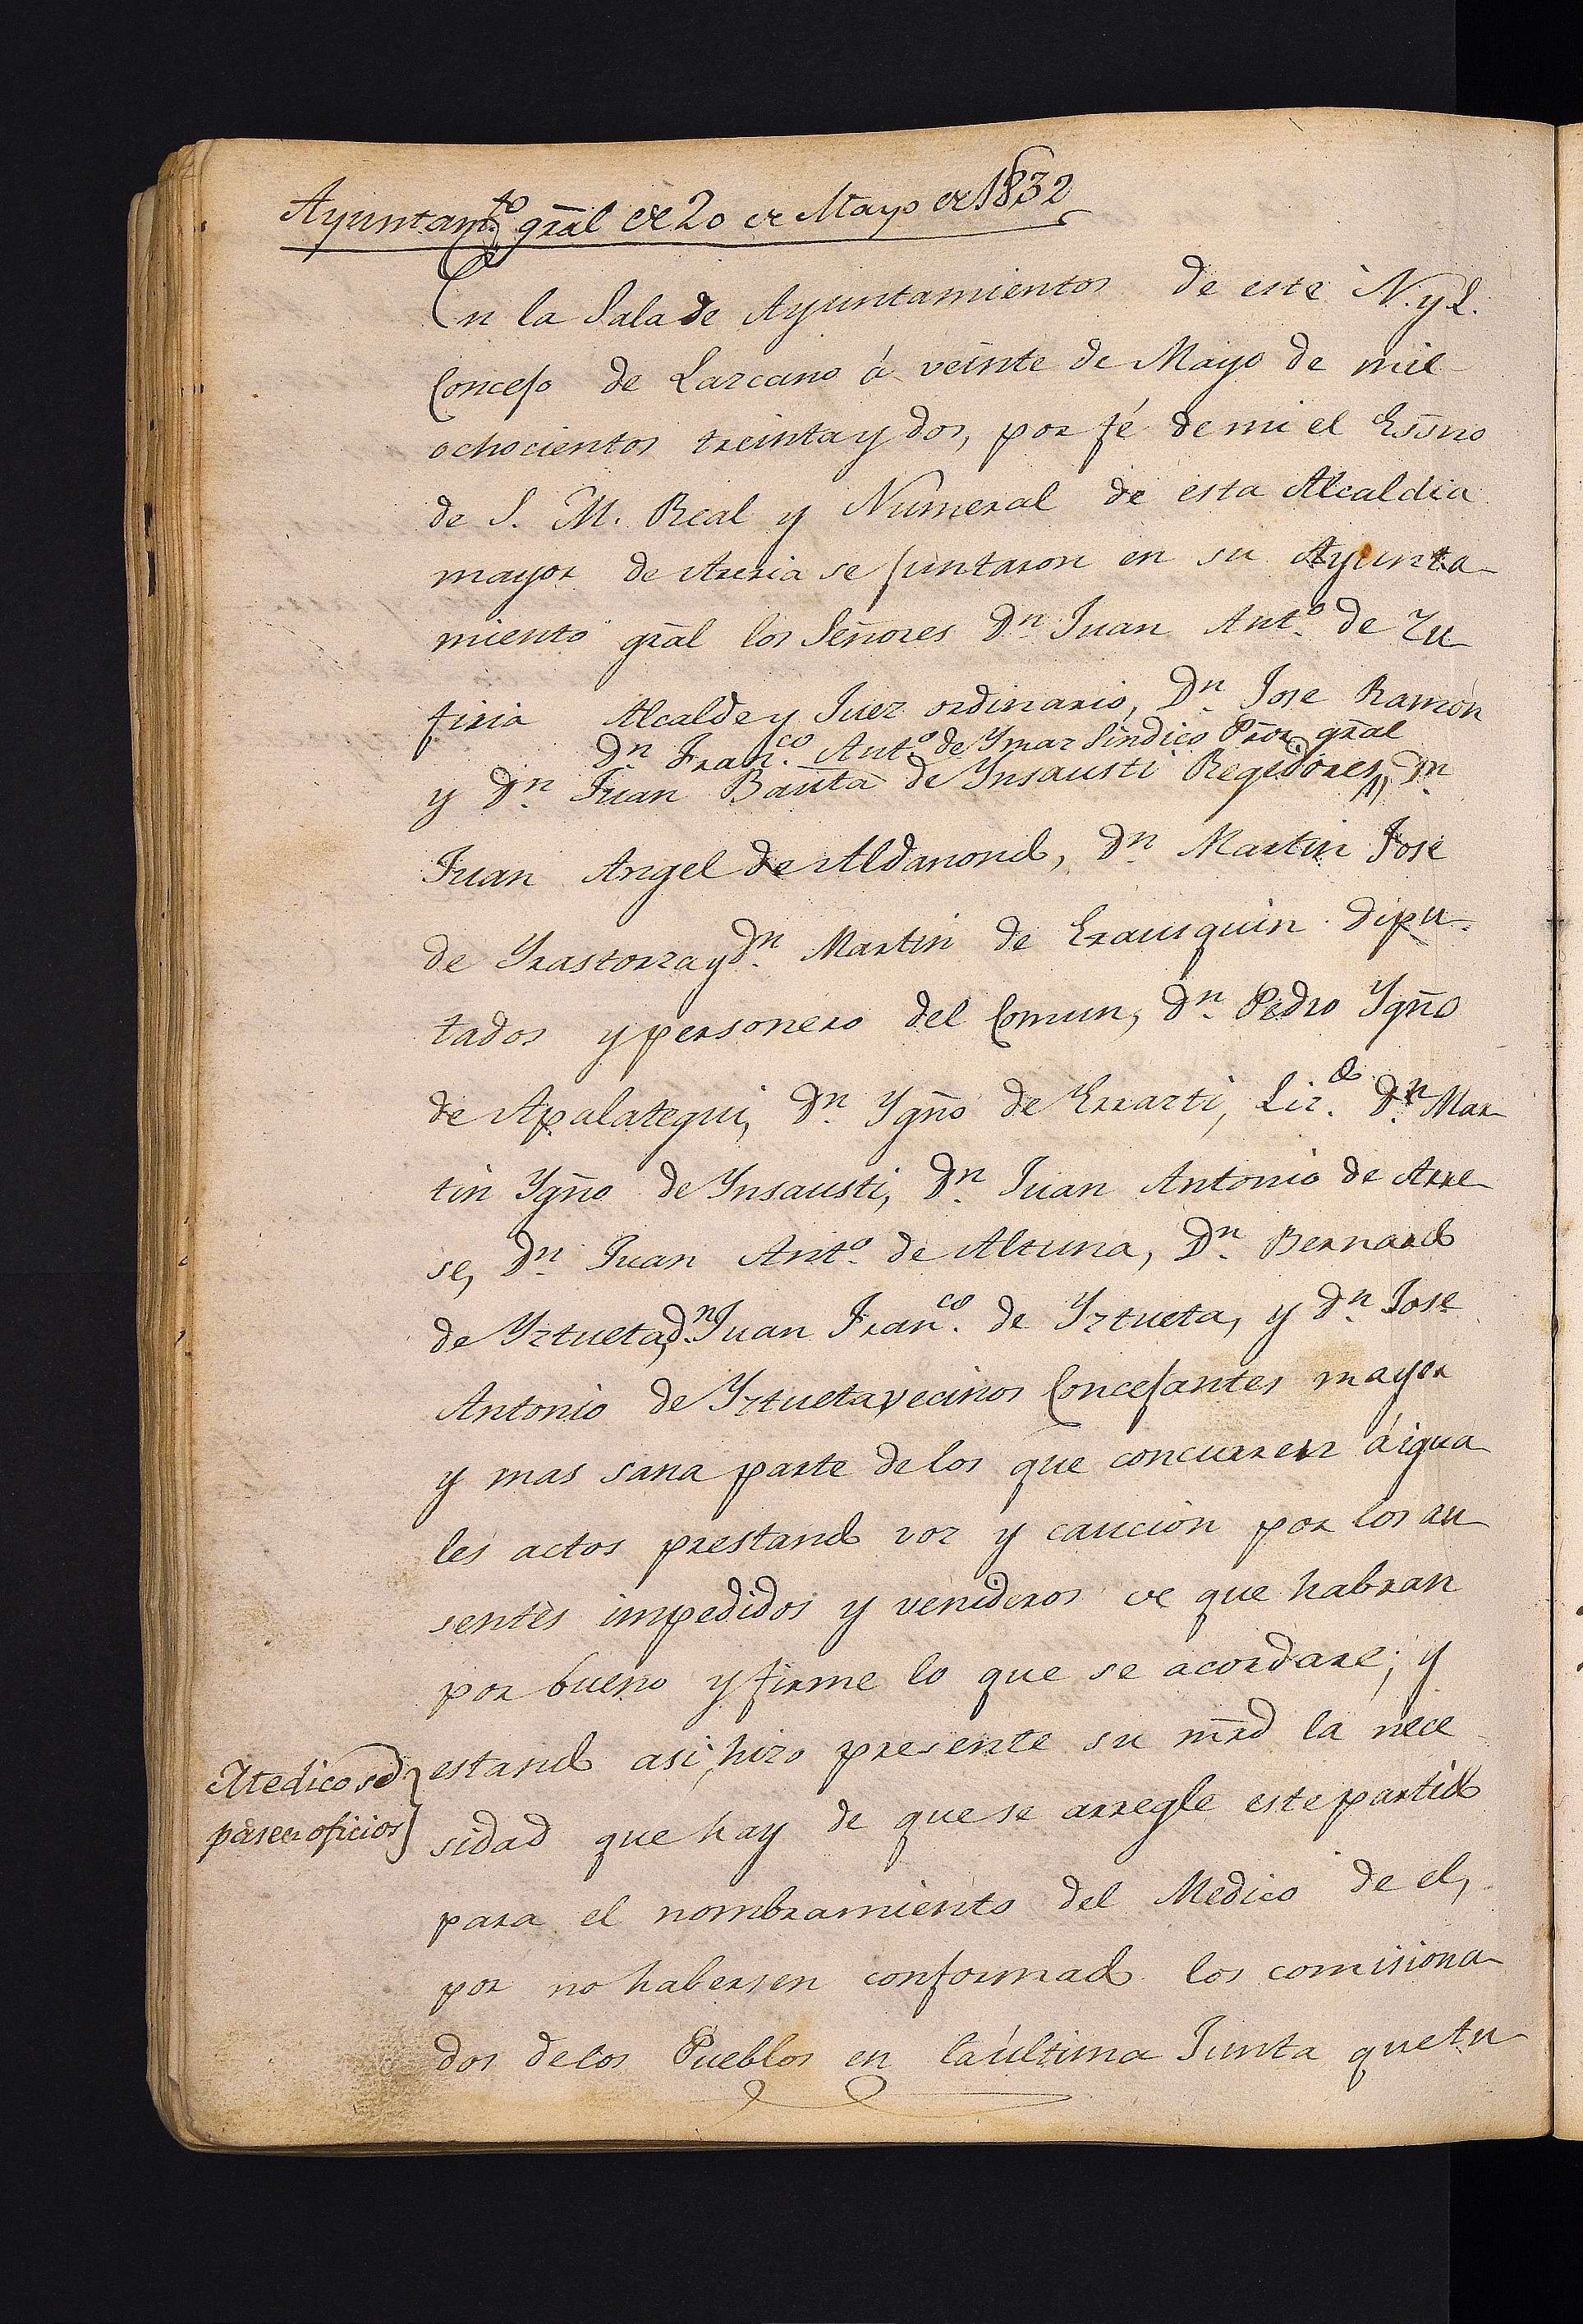 Ayuntam.to gr̃al de 20 de Mayo de 1832
En la Sala de Ayuntamientos de este N. y L.
Concejo de Lazcano á veinte de Mayo de mil
ochocientos treinta y dos, por fé de mi el Essno
de S. M. Real y Numeral de esta Alcaldia
mayor de Areria se juntaron en su Ayunta-
miento gr̃al los Señores Dn. Juan Ant.o de Zu-
firia Alcalde y Juez ordinario, Dn. Jose Ramon
Dn. Fran.co Ant.o de Ymaz Sindico Pr̃or gr̃al
y Dn. Juan Bau̅ta de Ynsausti Regidores, Dn.
Juan Angel de Aldanondo, Dn. Martin Jose
de Yrastorza y Dn. Martin de Erausquin dipu-
tados y personero del Comun, Dn. Pedro Ygño
de Apalategui, Dn. Ygño de Errarti, Liz.do Dn. Mar-
tin Ygño de Ynsausti, Dn. Juan Antonio de Arre-
se, Dn. Juan Ant.o de Altuna, Dn. Bernardo
de Yztueta, Dn. Juan Fran.co de Yztueta, y Dn. Jose
Antonio de Yztueta, vecinos Concejantes mayor
y mas sana parte de los que concurren á igua-
les actos prestando voz y caucion por los au-
sentes impedidos y venideros de que habran
por bueno y firme lo que se acordare; y
estando asi, hizo presente su mr̃d la nece-
Medico se
pasen oficios
sidad que hay de que se arregle este partido
para el nombramiento del Medico de el,
por no habersen conformado los comisiona-
dos de los Pueblos en la última Junta que tu-